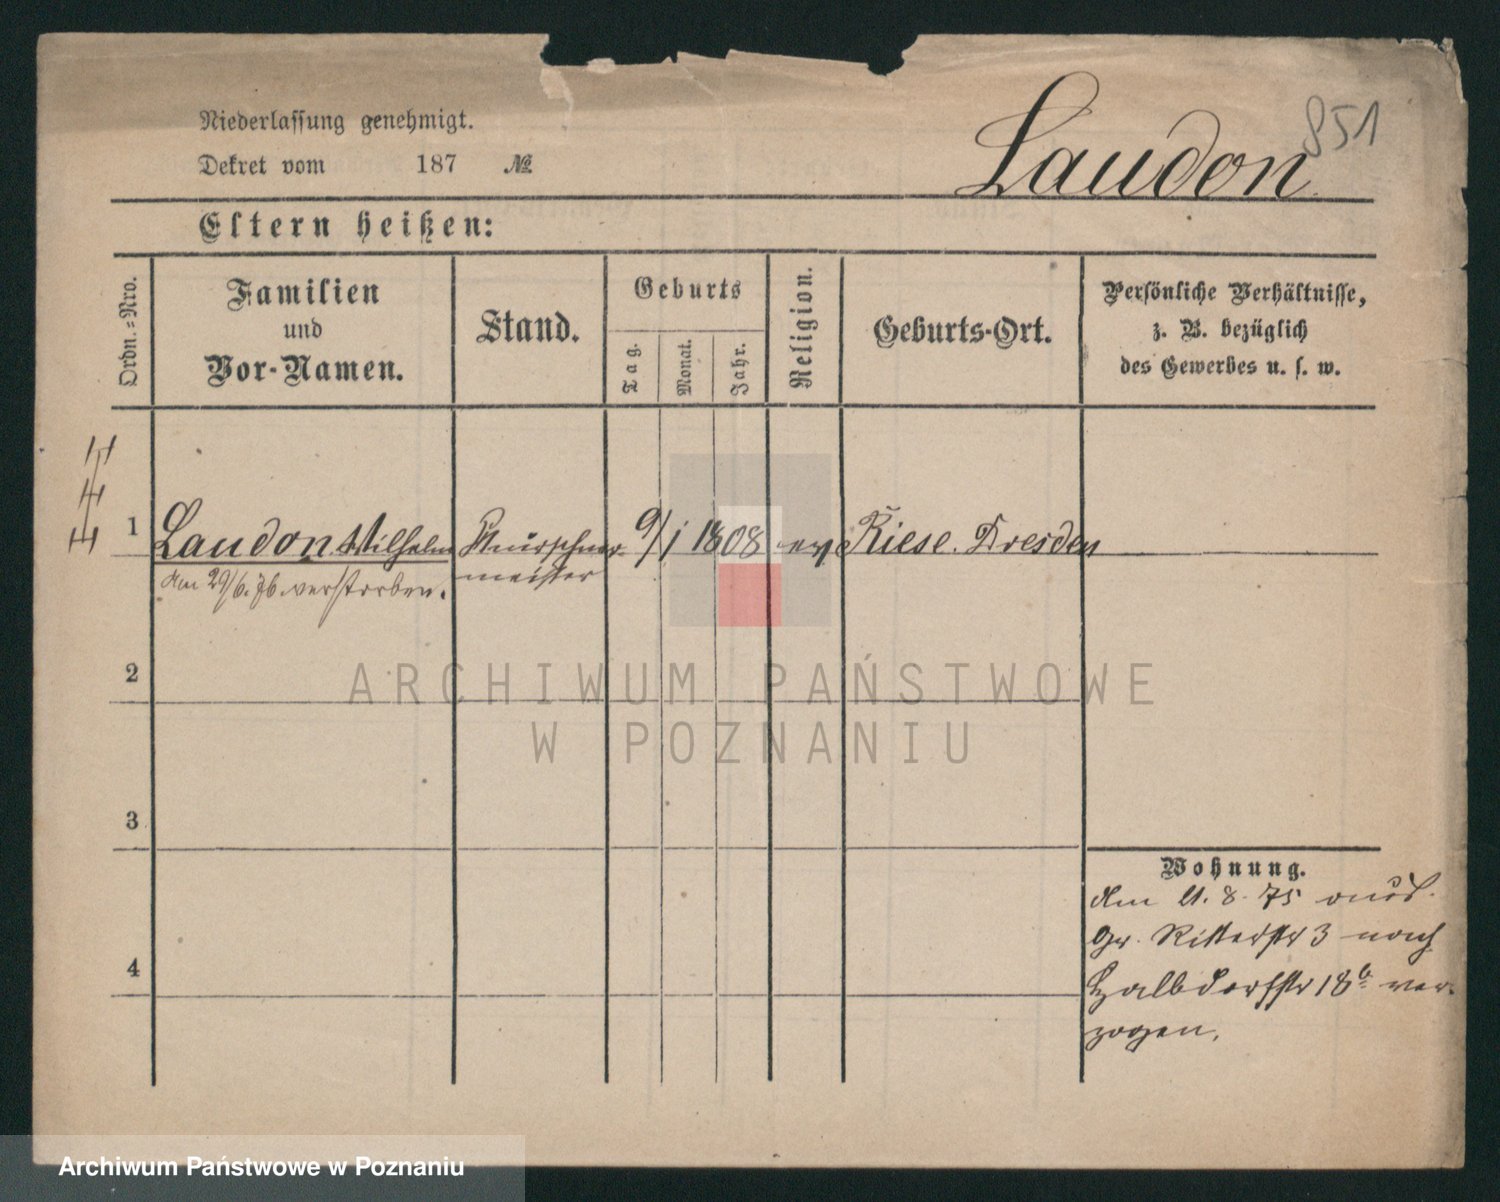 851
Niederlassung genehmigt.
Dekret vom 187 №
Laudon
Eltern heißen:
Ordn.=Nro.
Familien
und
Vor-Namen.
Stand.
Geburts
Tag.
Monat.
Jahr.
Religion.
Geburts-Ort.
Persönliche Verhältnisse,
z. B. bezüglich
des Gewerbes u. s. w.
1 Laudon Wilhelm 9/1 1808 ev Riese. Dresden
am 29/6. 76 verstorben. meister
2
ARCHIWUM PAŃSTWOWE
W POZNANIU
3
Wohnung.
Am 11. 8. 75 aus
Gr. Ritterstr 3 nach
4
Halbdorfstr 18b ver-
zogen.
Archiwum Państwowe w Poznaniu